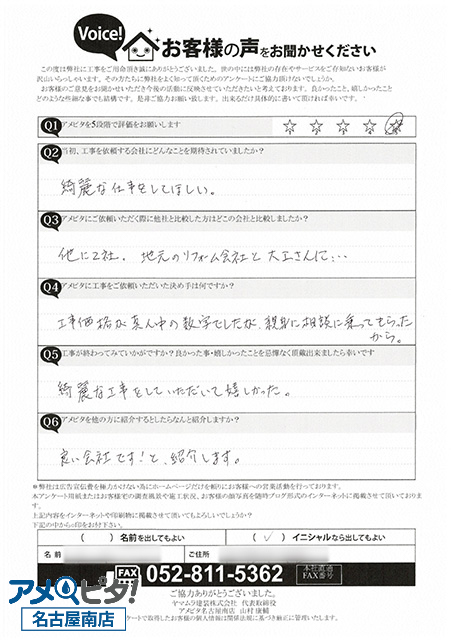 Voice!
お客様の声をお聞かせください
この度は弊社に工事をご用命頂き誠にありがとうございました。世の中には弊社の存在やサービスをご存知ないお客様が
沢山いらっしゃいます。その方たちに弊社をよく知って頂くためのアンケートにご協力頂けないでしょうか。
お客様のご意見をお聞かせいただき今後の活動に反映させていただきたいと考えております。良かったこと、嬉しかったこと
どのような些細な事でも結構です。是非ご協力お願い致します。出来るだけ具体的に書いて頂ければ幸いです。
Q1 アメピタを5段階で評価をお願いします
☆ ☆ ☆ ☆ ☆
Q2 当初、工事を依頼する会社にどんなことを期待されていましたか？
綺麗な仕事をしてほしい。
Q3 アメピタにご依頼いただく際に他社と比較した方はどこの会社と比較しましたか？
他に2社。地元のリフォーム会社と大工さんに…
Q4 アメピタに工事をご依頼いただいた決め手は何ですか？
工事価格が真ん中の数字でしたが、親身に相談に乗ってもらった
から。
Q5 工事が終わってみていかがですか？良かった事・嬉しかったことを忌憚なく頂戴出来ましたら幸いです
綺麗な工事をしていただいて嬉しかった。
Q6 アメピタを他の方に紹介するとしたらなんと紹介しますか？
良い会社です！と、紹介します。
＊弊社は広告宣伝費を極力かけない為にホームページだけを頼りにお客様への営業活動を行っております。
本アンケート用紙またはお客様宅の調査風景や施工状況、お客様の顔写真を随時ブログ形式のインターネットに掲載させて頂いております。
上記内容をインターネットや印刷物に掲載させて頂いてもよろしいでしょうか？
下記の中から○印をお付下さい。
（　）名前を出してもよい （✓）イニシャルなら出してもよい
名 前 ご住所
FAX 052-811-5362 本社直通 FAX番号
ご協力ありがとうございました。
ヤマムラ建装株式会社 代表取締役
アメピタ名古屋南店 山村康輔
ートで取得したお客様の個人情報は関係法規に基づき厳正に管理いたします。
アメピタ!
名古屋南店